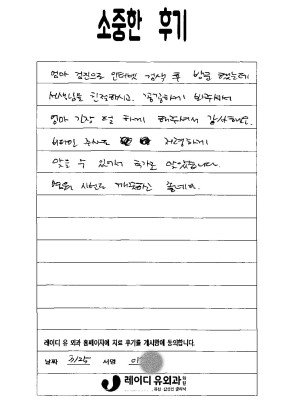 소중한 후기
엄마 검진으로 인터넷 검색 후 방문 했는데
선생님들 친절하시고, 꼼꼼하게 봐주셔서
엄마 긴장 덜 하게 해주셔서 감사해요.
비타민 주사도 저렴하게
맞을 수 있어서 추가로 맞았습니다.
병원 시설도 깨끗하고 좋네요.
레이디 유 외과 홈페이지에 치료 후기를 게시함에 동의합니다.
날짜 3/25 서명 이
레이디 유외과 의원